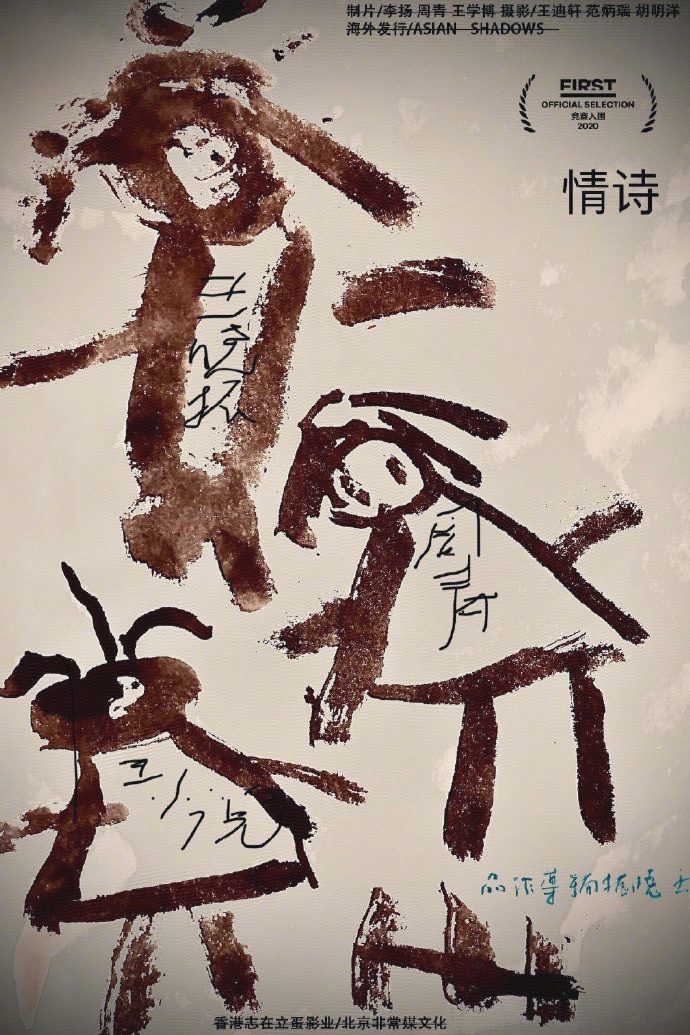 制片/李扬 周青 王学博 摄影/王迪轩 范炳瑞 胡明洋
海外发行/ASIAN SHADOWS
FIRST
OFFICIAL SELECTION
竞赛入围
2020
情诗
王晓振
周青
王小点
王晓振编导作品
香港志在立蛋影业/北京非常媒文化